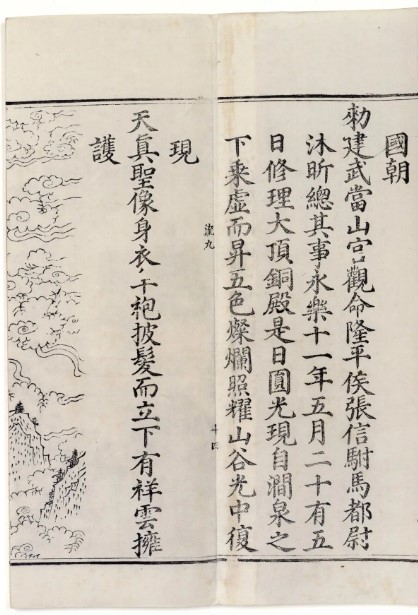 國朝
勑建武當山宮觀命隆平侯張信駙馬都尉
沐昕總其事永樂十一年五月二十有五
日修理大頂銅殿是日圓光現自澗泉之
下乘虛而昇五色燦爛照耀山谷光中復
九
十四
現
天真聖像身衣袍披髮而立下有祥雲擁
護